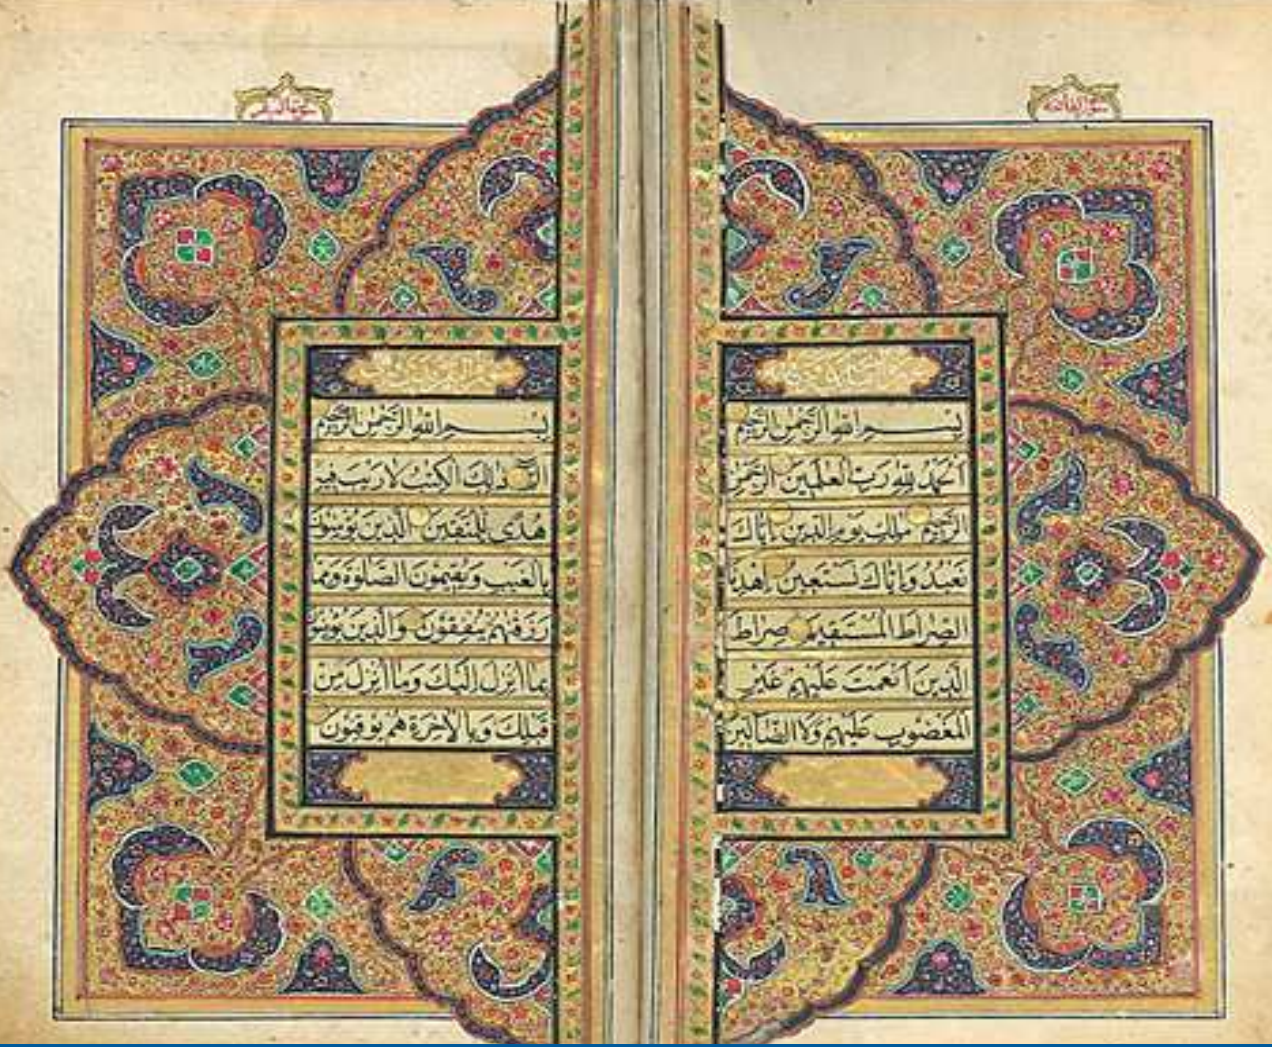 سورة الفاتحة
بسم الله الرحمن الرحيم
الحمد لله رب العلمين الرحمن
الرحيم ملك يوم الدين اياك
نعبد واياك نستعين اهدنا
الصراط المستقيم صراط
الذين انعمت عليهم غير
المغضوب عليهم ولا الضالين
بسم الله الرحمن الرحيم
الم ذلك الكتب لا ريب فيه
هدى للمتقين الذين يؤمنون
بالغيب ويقيمون الصلوة ومما
رزقنهم ينفقون والذين يؤمنون
بما انزل اليك وما انزل من
قبلك وبالاخرة هم يوقنون